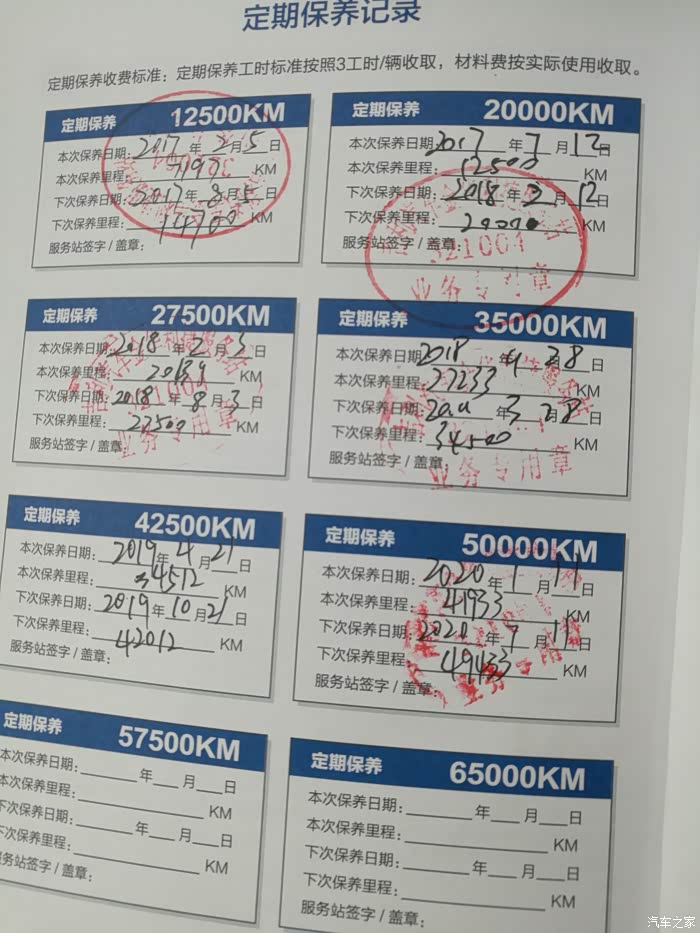 定期保养记录
定期保养收费标准：定期保养工时标准按照3工时/辆收取，材料费按实际使用收取。
定期保养 12500KM
本次保养日期：2017年2月5日
本次保养里程： KM
下次保养日期：2017年8月5日
下次保养里程：14700 KM
服务站签字/盖章：
定期保养 20000KM
本次保养日期：2017年7月12日
本次保养里程：12500 KM
下次保养日期：2018年2月12日
下次保养里程：20000 KM
服务站签字/盖章：
321004
业务专用章
定期保养 27500KM
本次保养日期：2018年2月3日
本次保养里程：20139 KM
下次保养日期：2018年8月3日
下次保养里程：27500 KM
服务站签字/盖章：
业务专用章
定期保养 35000KM
本次保养日期：2018年9月28日
本次保养里程：27233 KM
下次保养日期： 年3月28日
下次保养里程：34500 KM
服务站签字/盖章：
业务专用章
定期保养 42500KM
本次保养日期：2019年4月21日
本次保养里程：34512 KM
下次保养日期：2019年10月21日
下次保养里程：42012 KM
服务站签字/盖章：
定期保养 50000KM
本次保养日期：2020年1月11日
本次保养里程：41933 KM
下次保养日期：2020年7月11日
下次保养里程：49433 KM
服务站签字/盖章：
定期保养 57500KM
本次保养日期：____年__月__日
本次保养里程：____KM
下次保养日期：____年__月__日
下次保养里程：____KM
服务站签字/盖章：
定期保养 65000KM
本次保养日期：____年__月__日
本次保养里程：____KM
下次保养日期：____年__月__日
下次保养里程：____KM
服务站签字/盖章：
汽车之家